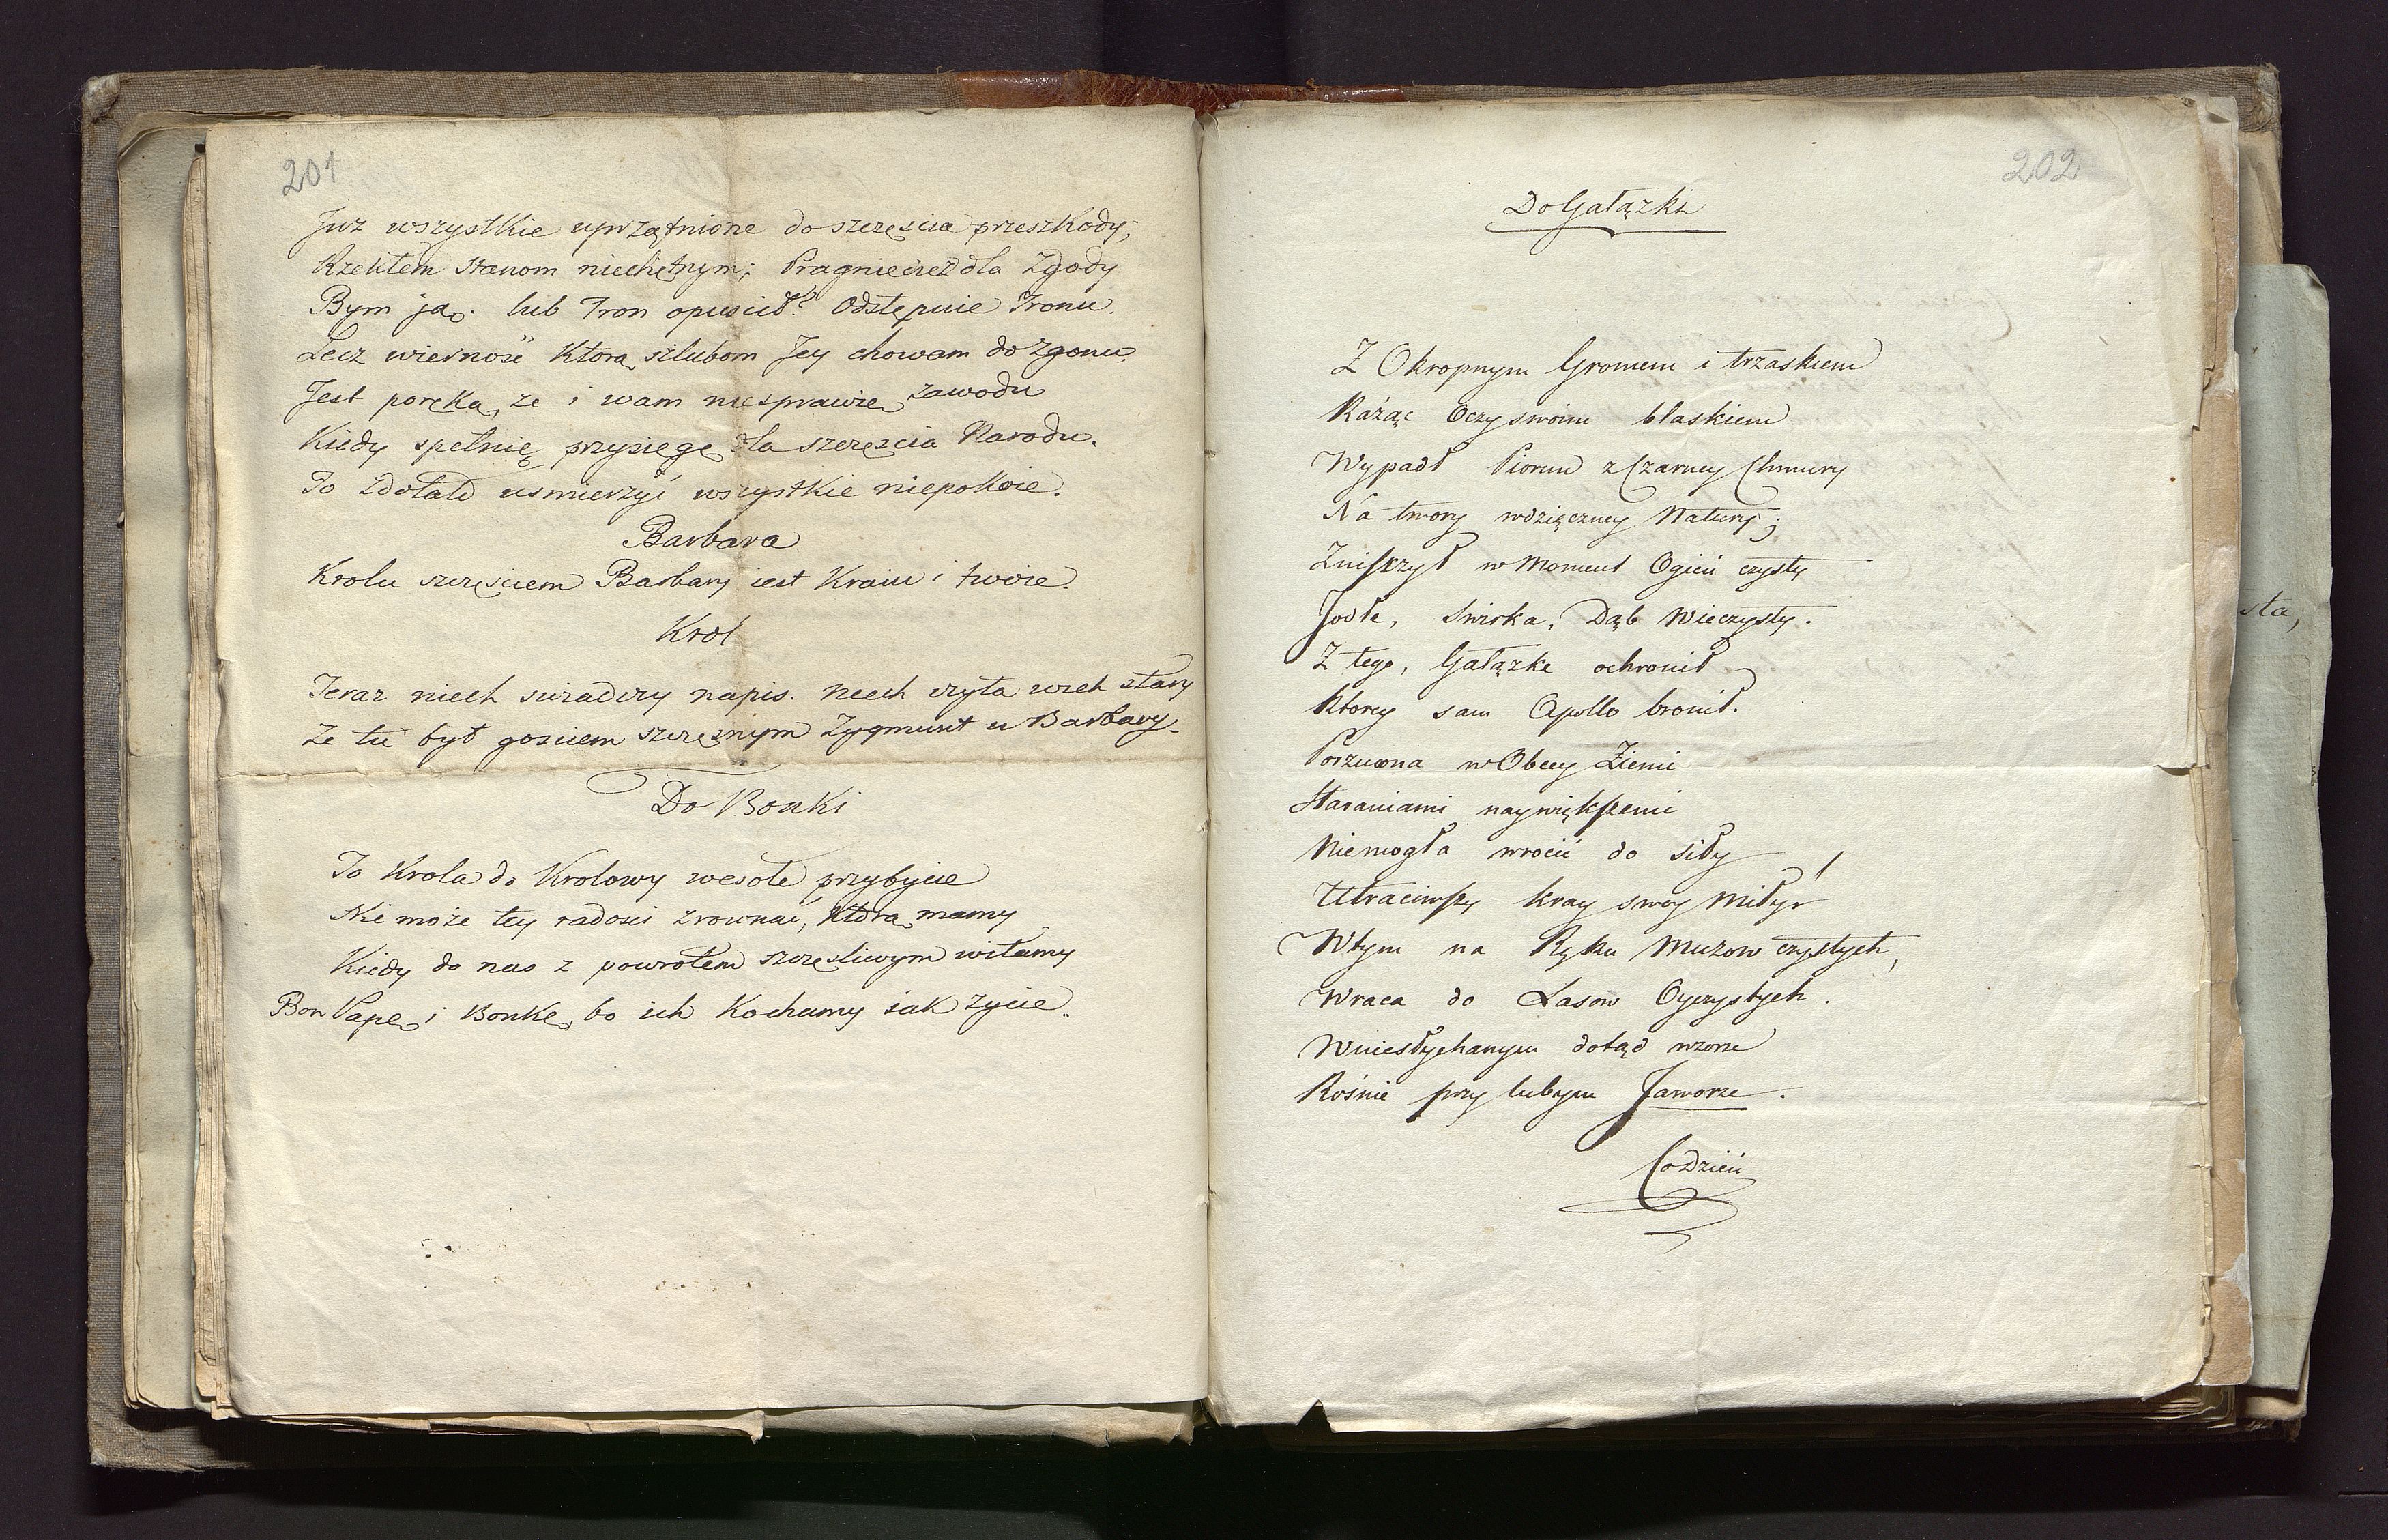 201
Juz wszystkie uprzątnione do szczęscia przeszkody;
Rzekłem stanom niechętnym; Pragniecież dla Zgody
Bym ją lub Tron opuscił? Odstępuie Tronu.
Lecz wierność którą szlubom Jey chowam do Zgonu,
Jest poręką, ze i wam niesprawię zawodu
Kiedy spełnię przysięgę dla szczęscia Narodu.
To zdołało usmierzyć wszystkie niepokoie.
Barbara
Krolu szczęsciem Barbary iest Kraiu i twoie.
Krol
Teraz niech swiadczy napis. niech czyta wiek stary
Ze tu był gosciem szczęsnym Zygmunt u Barbary.
Do Bonki
To Krola do Krolowy wesołe przybycie
Nie może tey radosci zrownać, którą mamy
Kiedy do nas z powrotem szczęsliwym witamy
Bon Papę i Bonkę, bo ich Kochamy iak życie.
202
Do Gałązki
Z Okropnym Gromem i trzaskiem
Rażąc Oczy swoim blaskiem
Wypadł Piorun z Czarney Chmury
Na twory wdzięczney Natury;
Zniszczył w Moment Ogień czysty
Jodłe, Swirka, Dąb Wieczysty.
Z tego, Gałązke ochronił
Ktorey sam Apollo bronił.
Porzucona w Obcey Ziemi
Staraniami naywiększemi
Niemogła wrocić do siły
Utraciwszy kray swoy Miły!
Wtym na Ręku Muzow czystych,
Wraca do Lasow Oyczystych.
Wniesłychanym dotąd wzorze
Rośnie przy lubym Jaworze.
Codzień
sta,